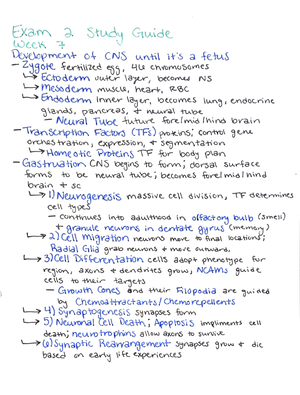 Exam 2 Study Guide
Week 7
Development of CNS until it's a fetus
- Zygote fertilized egg, 46 chromosomes
↳ Ectoderm outer layer, becomes NS
↳ Mesoderm muscle, heart, RBC
↳ Endoderm inner layer, becomes lung, endocrine
glands, pancreas, & neural tube
- Neural Tube future fore/mid/hind brain
- Transcription Factors (TFs) proteins; control gene
orchestration, expression, & segmentation
↳ Homeotic Proteins TF for body plan
- Gastruation CNS begins to form; dorsal surface
forms to be neural tube; becomes fore/mid/hind
brain & sc
↳ 1) Neurogenesis massive cell division, TF determines
cell types
- continues into adulthood in olfactory bulb (smell)
& granule neurons in dentate gyrus (memory)
↳ 2) Cell Migration neurons move to final locations;
Radial Glia grab neurons & move outward
↳ 3) Cell Differentiation cells adopt phenotype for
region, axons & dendrites grow, NCAMs guide
cells to their targets
- Growth Cones and their Filopodia are guided
by Chemoattractants/Chemorepellents
↳ 4) Synaptogenesis synapses form
↳ 5) Neuronal Cell Death; Apoptosis impliments cell
death; neurotrophins allow axons to survive
↳ 6) Synaptic Rearrangement synapses grow & die
based on early life experiences